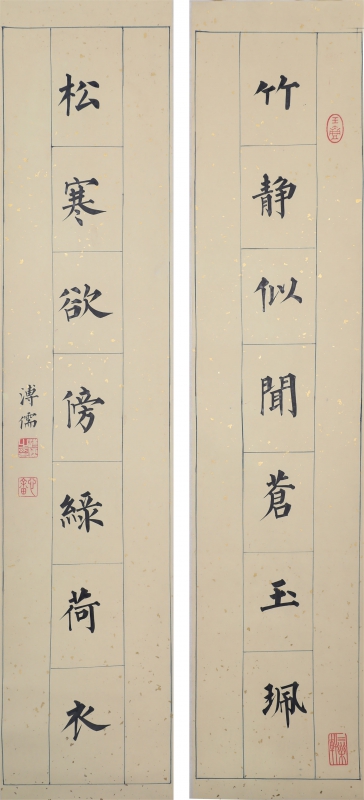 竹靜似聞蒼玉珮
松寒欲傍綠荷衣
溥儒